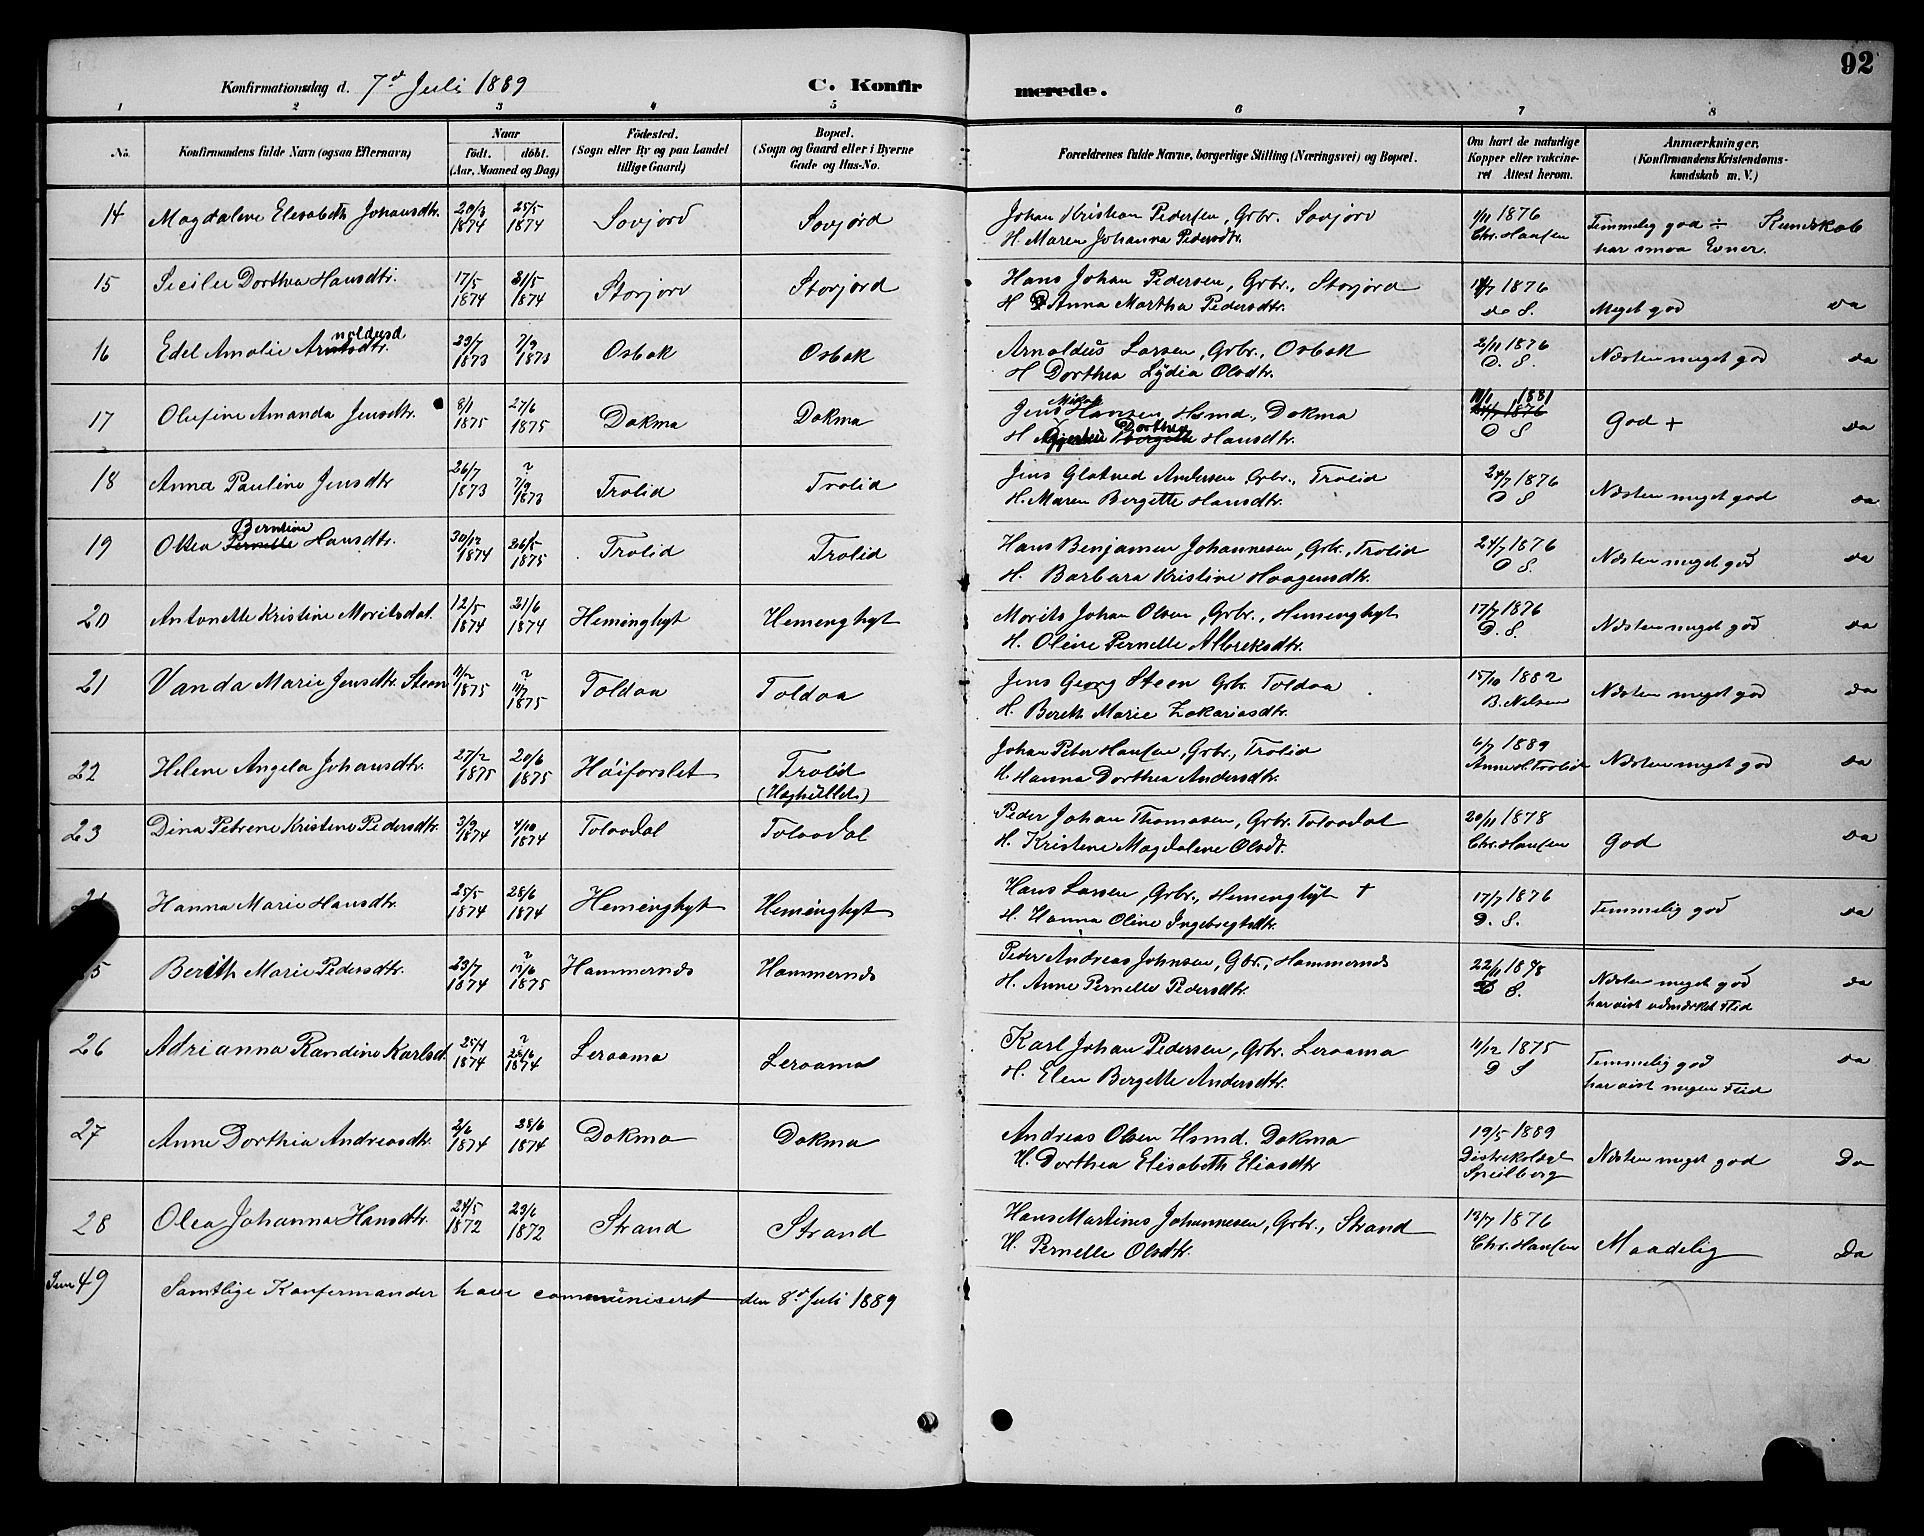 92
Konfirmationsdag d. 7d Juli 1889 C. Konfirmerede.
1 2 3 4 5 6 7 8
No. Konfirmandens fulde Navn (ogsaa Efternavn) Naar født. døbt. (Aar, Maaned og Dag) Fødested. (Sogn eller By og paa Landet tillige Gaard) Bopæl. (Sogn og Gaard eller i Byerne Gade og Hus-No. Forældrenes fulde Navne, borgerlige Stilling (Næringsvei) og Bopæl. Om havt de naturlige Kopper eller vakcineret Attest herom. Anmærkninger. (Konfirmandens Kristendomskundskab m. V.)
14 Magdalene Elisabeth Johansdtr. 20/3 1874 25/5 1874 Sovjord Sovjord Johan Kristian Pedersen, Grbr. Sovjord 1/11 1876 Temmelig god ÷ Kundskab
H. Maren Johanna Pedersdtr. Chr. Hansen har smaa Evner.
15 Sicilie Dorthea Hansdtr. 17/5 1874 31/5 1874 Storjord Storjord Hans Johan Pedersen, Grbr., Storjord 1876 Meget god da
H. Anna Martha Pedersdtr. do S.
16 Edel Amalie Arnoldusd 29/7 1873 7/9 1873 Osbak Osbak Arnoldus Larsen, Grbr., Osbak 2/11 1876 Næsten meget god da
H Dorthea Lydia Olsdtr. D. S.
17 Olufine Amanda Jensdtr. 8/1 1875 27/6 1875 Dokma Dokma Jens Hansen, Hsmd., Dokma 1881 God + da
H Dorthea Hansdtr. D S
18 Anna Pauline Jensdtr 26/7 1873 ~ 7/9 1873 Trolid Trolid Jens Glatved Andersen Grbr., Trolid 24/7 1876 Næsten meget god da
H. Maren Bergette Hansdtr. D S
19 Oltea Berntine Hansdtr. 30/12 1874 26/5 1875 Trolid Trolid Hans Benjamen Johannesen, Grbr., Trolid 24/7 1876 Næsten meget god da
H. Barbara Kristine Haagensdtr. D S.
20 Antonette Kristine Moritsdat. 12/5 1874 21/6 1874 Heminghyt Hemenghyt Morits Johan Olsen, Grbr., Hemenghyt 17/7 1876 Næsten meget god da
H. Oline Pernelle Albreksdtr. D. S.
21 Vanda Marie Jensdtr. Steen 11/2 1875 ~ 11/7 1875 Toldaa Toldaa Jens Georg Steen Grbr. Toldaa 15/10 1882 Næsten meget god da
H. Bereth Marie Zakariasdtr. B. Nelsen
22 Helene Angela Johansdtr. 27/2 1875 20/6 1875 Höiforslet Trolid Johan Peter Hansen, Grbr., Trolid 6/7 1889 Næsten meget god da
H. Hanna Dorthea Andersdtr. Anne H. Trolid
23 Dina Petrene Kristene Pedersdtr. 3/9 1874 4/10 1874 Tolaadal Tolaadal Peder Johan Thomasen, Grbr. Tolaadal 20/11 1878 God da
H. Kristene Magdalene Olsdt. Chr. Hansen
Hanna Marie Hansdtr. 25/5 1874 28/6 1874 Hemenghyt Hemenghyt Hans Larsen, Grbr., Hemenghyt + 17/7 1876 Temmelig god da
H. Hanna Oline Ingebregtsdtr. D. S.
5 Bereth Marie Pedersdtr. 23/7 1874 ~ 13/6 1875 Hammernes Hammernes Peder Andreas Johnsen, Gbr., Hammernes 22/11 1878 Næsten meget god da
H. Anne Pernelle Pedersdtr. S. har vist udmerket Flid
26 Adrianna Randine Karlsd. 25/4 1874 ~ 28/6 1874 Leraama Leraama Karl Johan Pedersen, Grbr. Leraama 11/12 1875 Temmelig god da
H. Elen Bergette Andersdtr. D S har vist megen Flid
27 Anne Dorthia Andreasdtr. 2/6 1874 28/6 1874 Dokma Dokma Andreas Olsen Hsmd. Dokma 19/5 1889 Næsten meget god Da
H. Dorthea Elisabeth Eliasdtr Spielberg
28 Olea Johanna Hansdtr. 24/5 1872 29/6 1872 Strand Strand Hans Martines Johannesen, Grbr., Strand 19/7 1876 Maadelig Da
H. Pernelle Olsdtr. Chr. Hansen
Sum 49 Samtlige Konfermander have communiseret den 8d Juli 1889